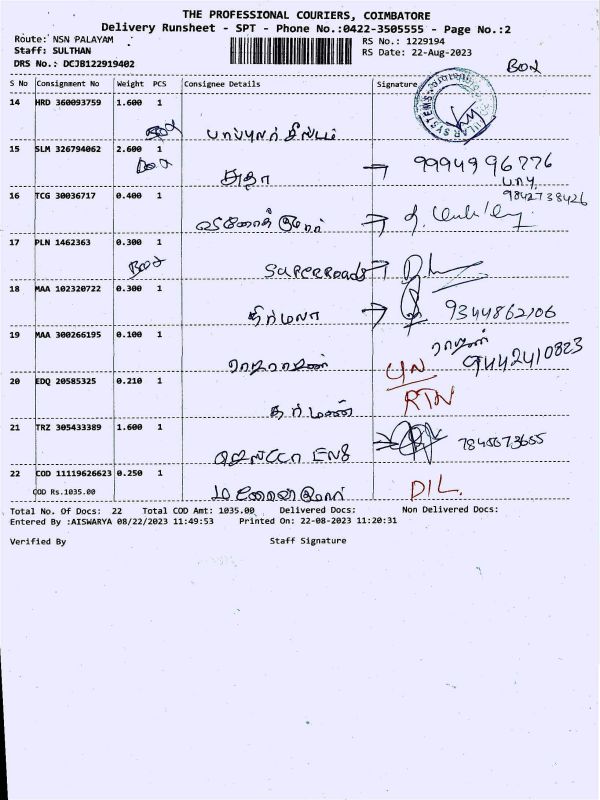 THE PROFESSIONAL COURIERS, COIMBATORE
Delivery Runsheet - SPT - Phone No.:0422-3505555 - Page No.:2
Route: NSN PALAYAM RS No.: 1229194
Staff: SULTHAN RS Date: 22-Aug-2023
DRS No.: DCJB122919402
BOX
S No Consignment No Weight PCS Consignee Details Signature
14 HRD 360093759 1.600 1
BOX
15 SLM 326794062 2.600 1 9994996776
BOX சுதா
16 TCG 30036717 0.400 1 9842738426
17 PLN 1462363 0.300 1
BOX SUPERROADS
18 MAA 102320722 0.300 1
நிர்மலா 9344862106
19 MAA 300266195 0.100 1 ராஜன்
9442410823
20 EDQ 20585325 0.210 1
RTN
21 TRZ 305433389 1.600 1 7845673655
ENG
22 COD 11119626623 0.250 1
COD Rs.1035.00 DIL.
Total No. Of Docs: 22 Total COD Amt: 1035.00 Delivered Docs: Non Delivered Docs:
Entered By :AISWARYA 08/22/2023 11:49:53 Printed On: 22-08-2023 11:20:31
Verified By Staff Signature